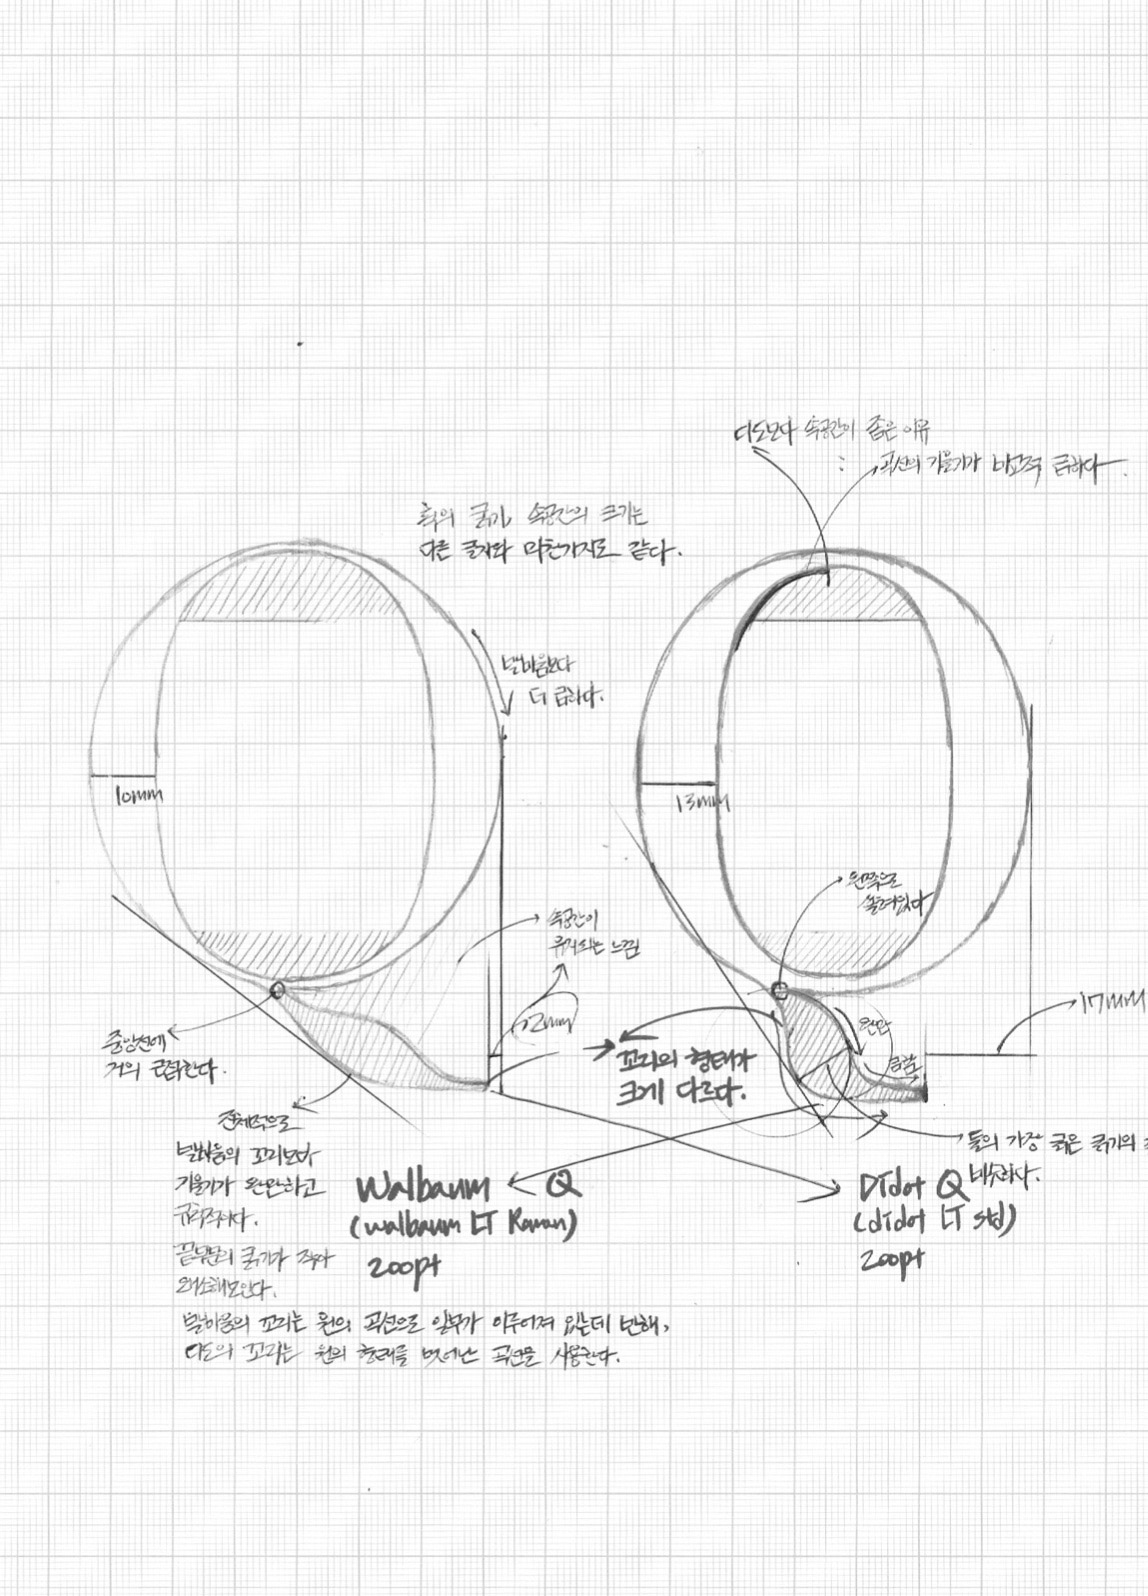 디도보다 속공간이 좁은 이유
: 곡선의 기울기가 비교적 급하다.
획의 굵기, 속공간의 크기는
다른 글자와 마찬가지로 같다.
발바움보다
더 급하다.
10mm
13mm
왼쪽으로
쏠려있다
속공간이
유지되는 느낌
12mm
17mm
완만
급함
중앙선에
거의 근접한다.
꼬리의 형태가
크게 다르다.
전체적으로
발바움의 꼬리보다
기울기가 완만하고
규칙적이다.
끝부분의 굵기가 작아
왜소해보인다.
둘의 가장 굵은 굵기의
비슷하다.
Walbaum Q
(walbaum LT Roman)
200pt
Didot Q
(didot LT std)
200pt
발바움의 꼬리는 원의 곡선으로 일부가 이루어져 있는데 반해,
디도의 꼬리는 원의 형태를 벗어난 곡선을 사용한다.